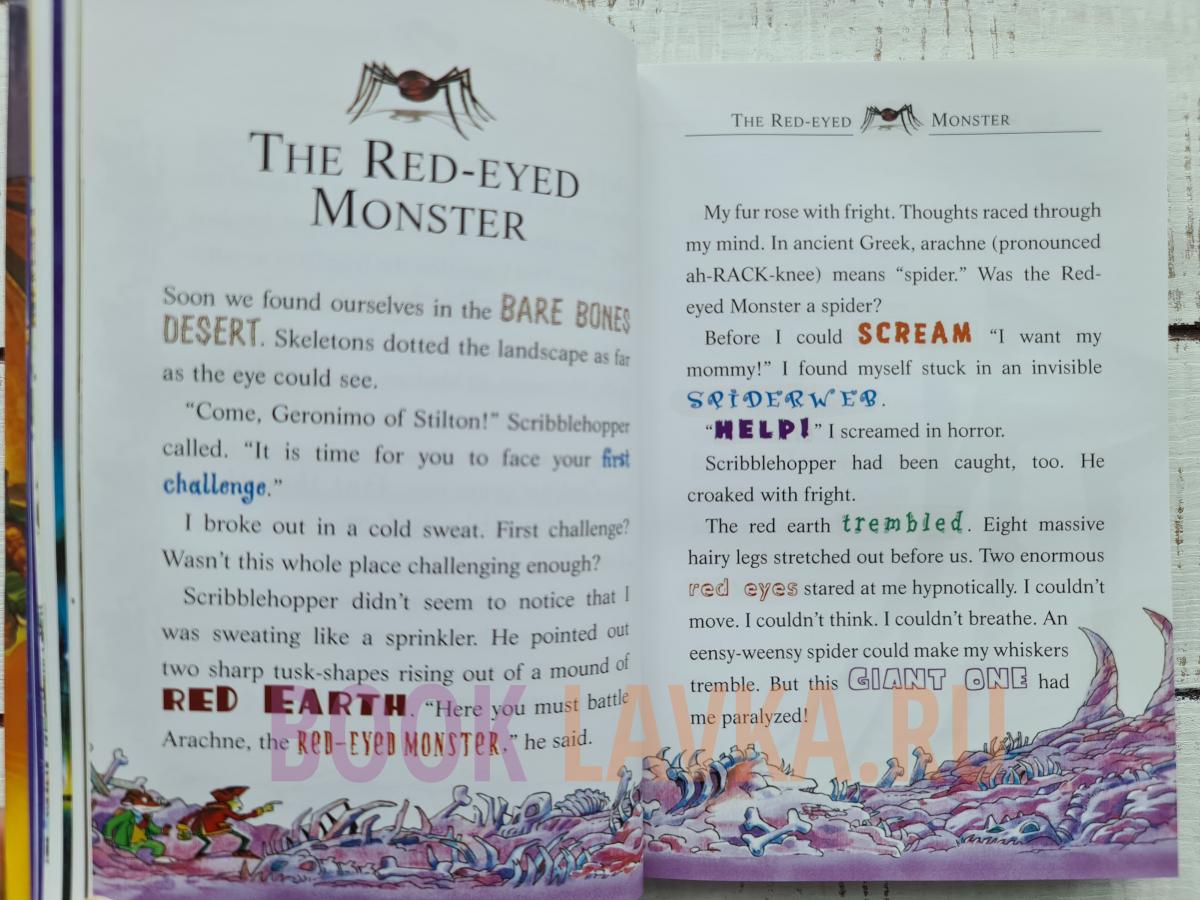 THE RED-EYED
MONSTER
Soon we found ourselves in the BARE BONES
DESERT. Skeletons dotted the landscape as far
as the eye could see.
“Come, Geronimo of Stilton!” Scribblehopper
called. “It is time for you to face your first
challenge.”
I broke out in a cold sweat. First challenge?
Wasn’t this whole place challenging enough?
Scribblehopper didn’t seem to notice that I
was sweating like a sprinkler. He pointed out
two sharp tusk-shapes rising out of a mound of
RED EARTH. “Here you must battle
Arachne, the RED-EYED MONSTER,” he said.
THE RED-EYED MONSTER
My fur rose with fright. Thoughts raced through
my mind. In ancient Greek, arachne (pronounced
ah-RACK-knee) means “spider.” Was the Red-
eyed Monster a spider?
Before I could SCREAM “I want my
mommy!” I found myself stuck in an invisible
SPIDERWEB.
“HELP!” I screamed in horror.
Scribblehopper had been caught, too. He
croaked with fright.
The red earth trembled. Eight massive
hairy legs stretched out before us. Two enormous
red eyes stared at me hypnotically. I couldn’t
move. I couldn’t think. I couldn’t breathe. An
eensy-weensy spider could make my whiskers
tremble. But this GIANT ONE had
me paralyzed!
BOOK LAVKA.RU